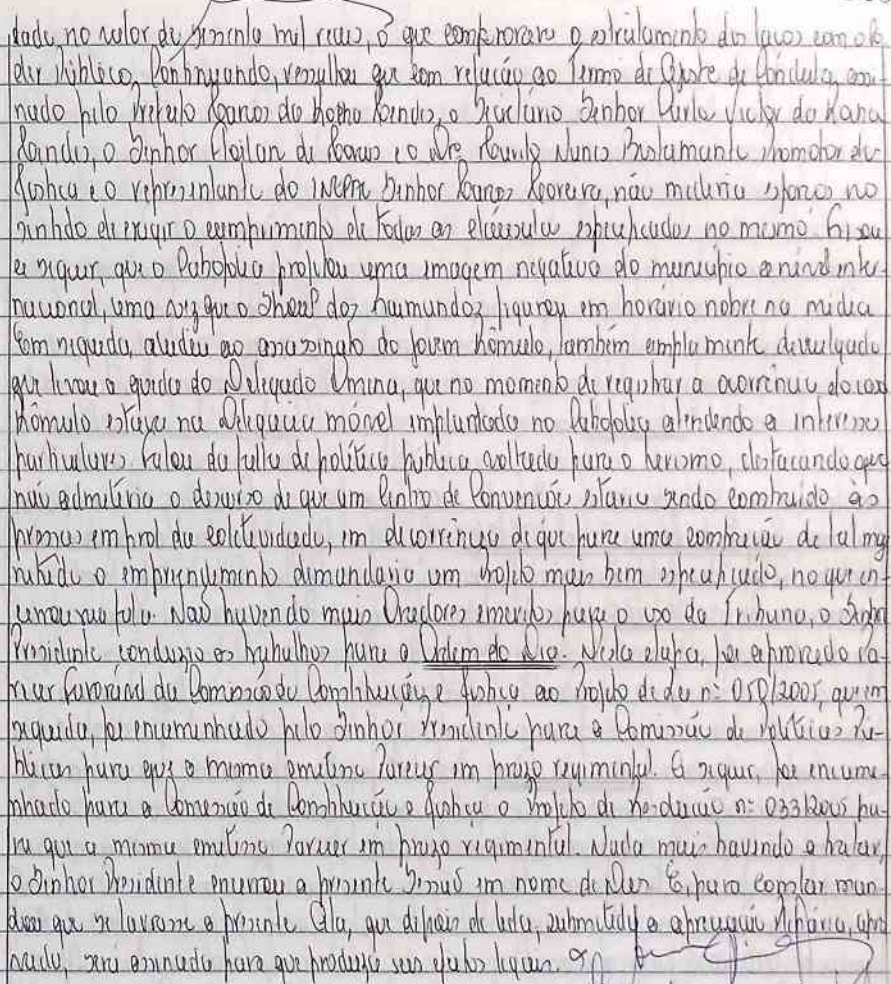 dade no valor de sessenta mil reais, o que comprovara o estreitamento dos laços com o Po-
der Público. Continuando, ressaltou que com relação ao Termo de Ajuste de Conduta, assi-
nado pelo Prefeito Marcos da Rocha Mendes, o Secretário Senhor Carlos Victor da Rocha
Mendes, o Senhor de e o Dr. Murilo Nunes Bustamante Promotor de
Justiça e o representante do INEPAC Senhor Marcos Moreira, não mediria esforços no
sentido de exigir o cumprimento de todas as cláusulas especificadas no mesmo. Frisou
a seguir, que o Pabopolia projetou uma imagem negativa do município a nível inte-
nacional, uma vez que o Show dos Raimundos figurou em horário nobre na mídia
Em seguida, aludiu ao assassinato do jovem Rômulo, também amplamente divulgado
que levou a queda do Delegado Omena, que no momento de registrar a ocorrência do caso
Rômulo estava na Delegacia móvel implantada no Pabopolia atendendo a interesses
particulares. Falou da falta de política pública voltada para o turismo, destacando que
não admitiria o discurso de que um Centro de Convenções estaria sendo construído às
pressas em prol da coletividade, em decorrência de que para uma construção de tal mag
nitude o empreendimento demandaria um Projeto mais bem especificado, no que en-
cerrou sua fala. Não havendo mais Oradores inscritos para o uso da Tribuna, o Senhor
Presidente conduzio os trabalhos para a Ordem do Dia. Nesta etapa, foi aprovado Pa-
recer favorável da Comissão de Constituição e Justiça ao Projeto de Lei nº 050/2005, que em
seguida, foi encaminhado pelo Senhor Presidente para a Comissão de Políticas Pú-
blicas para que a mesma emitisse Parecer em prazo regimental. A seguir, foi encami
nhado para a Comissão de Constituição e Justiça o Projeto de Resolução nº 033/2005 pa-
ra que a mesma emitisse Parecer em prazo regimental. Nada mais havendo a tratar,
o Senhor Presidente encerrou a presente Sessão em nome de Deus. E, para constar man-
dou que se lavrasse a presente Ata, que depois de lida, submetida a apreciação Plenária, apro
vada, será assinada para que produza seus efeitos legais.